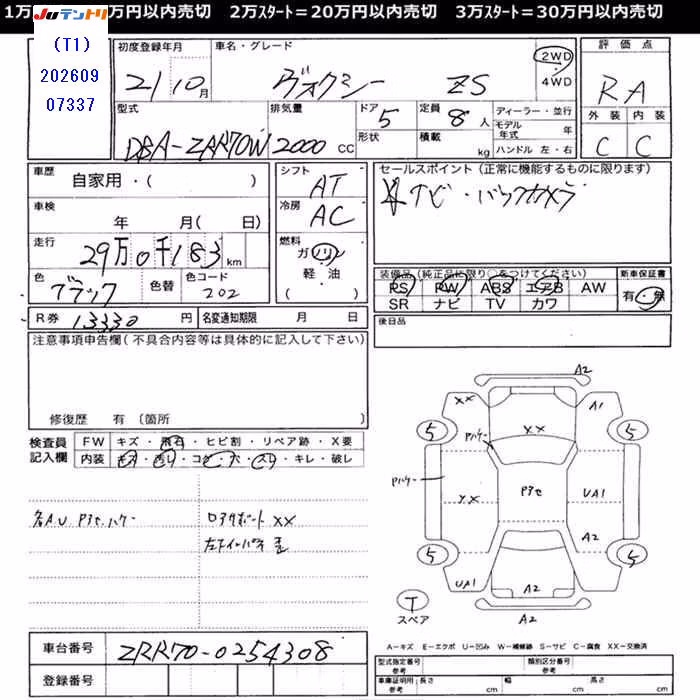 1万 万円以内売切 2万スタート=20万円以内売切 3万スタート=30万円以内売切
Juテントリ
(T1)
202609
07337
初度登録年月
21 10月
車名・グレード
ヴォクシー ZS
2WD
4WD
評価点
RA
外装 内装
C C
型式
DBA-ZRR70W
排気量
2000 CC
ドア 5
形状
定員 8 人
積載 kg
ディーラー・並行
モデル年式 年
ハンドル 左・右
車歴 自家用・( )
車検 年 月( 日)
走行 29万0千183 km
色 ブラック
色替
色コード 202
シフト AT
冷房 AC
燃料 ガソリン
軽・油
( )
セールスポイント(正常に機能するものに限ります)
ナビ・バックカメラ
装備品(純正品に限り○をつけてください)
PS PW ABS エアB AW
SR ナビ TV カワ
新車保証書
有・無
R券 13330 円
名変通知期限 月 日
後日品
注意事項申告欄(不具合内容等は具体的に記入して下さい)
修復歴 有 (箇所
検査員記入欄
FW キズ・飛石・ヒビ割・リペア跡・X要
内装 キズ・汚レ・コゲ・穴・スレ・キレ・破レ
各A.U Pヌセ.ハケー
ロアサポート XX
左下インパネ 歪
A2
XX A1
5 5
XX
Pハケー
Pハケー
XX Pヌセ UA1
A2
5 5
UA1 A2
A2
T
スペア
A-キズ E-エクボ U-凹み W-補修跡 S-サビ C-腐食 XX-交換済
車台番号 ZRR70-0254308
登録番号
型式指定番号 参考
類別区分番号 参考
車庫証明用 参考 長さ cm 幅 cm 高さ cm